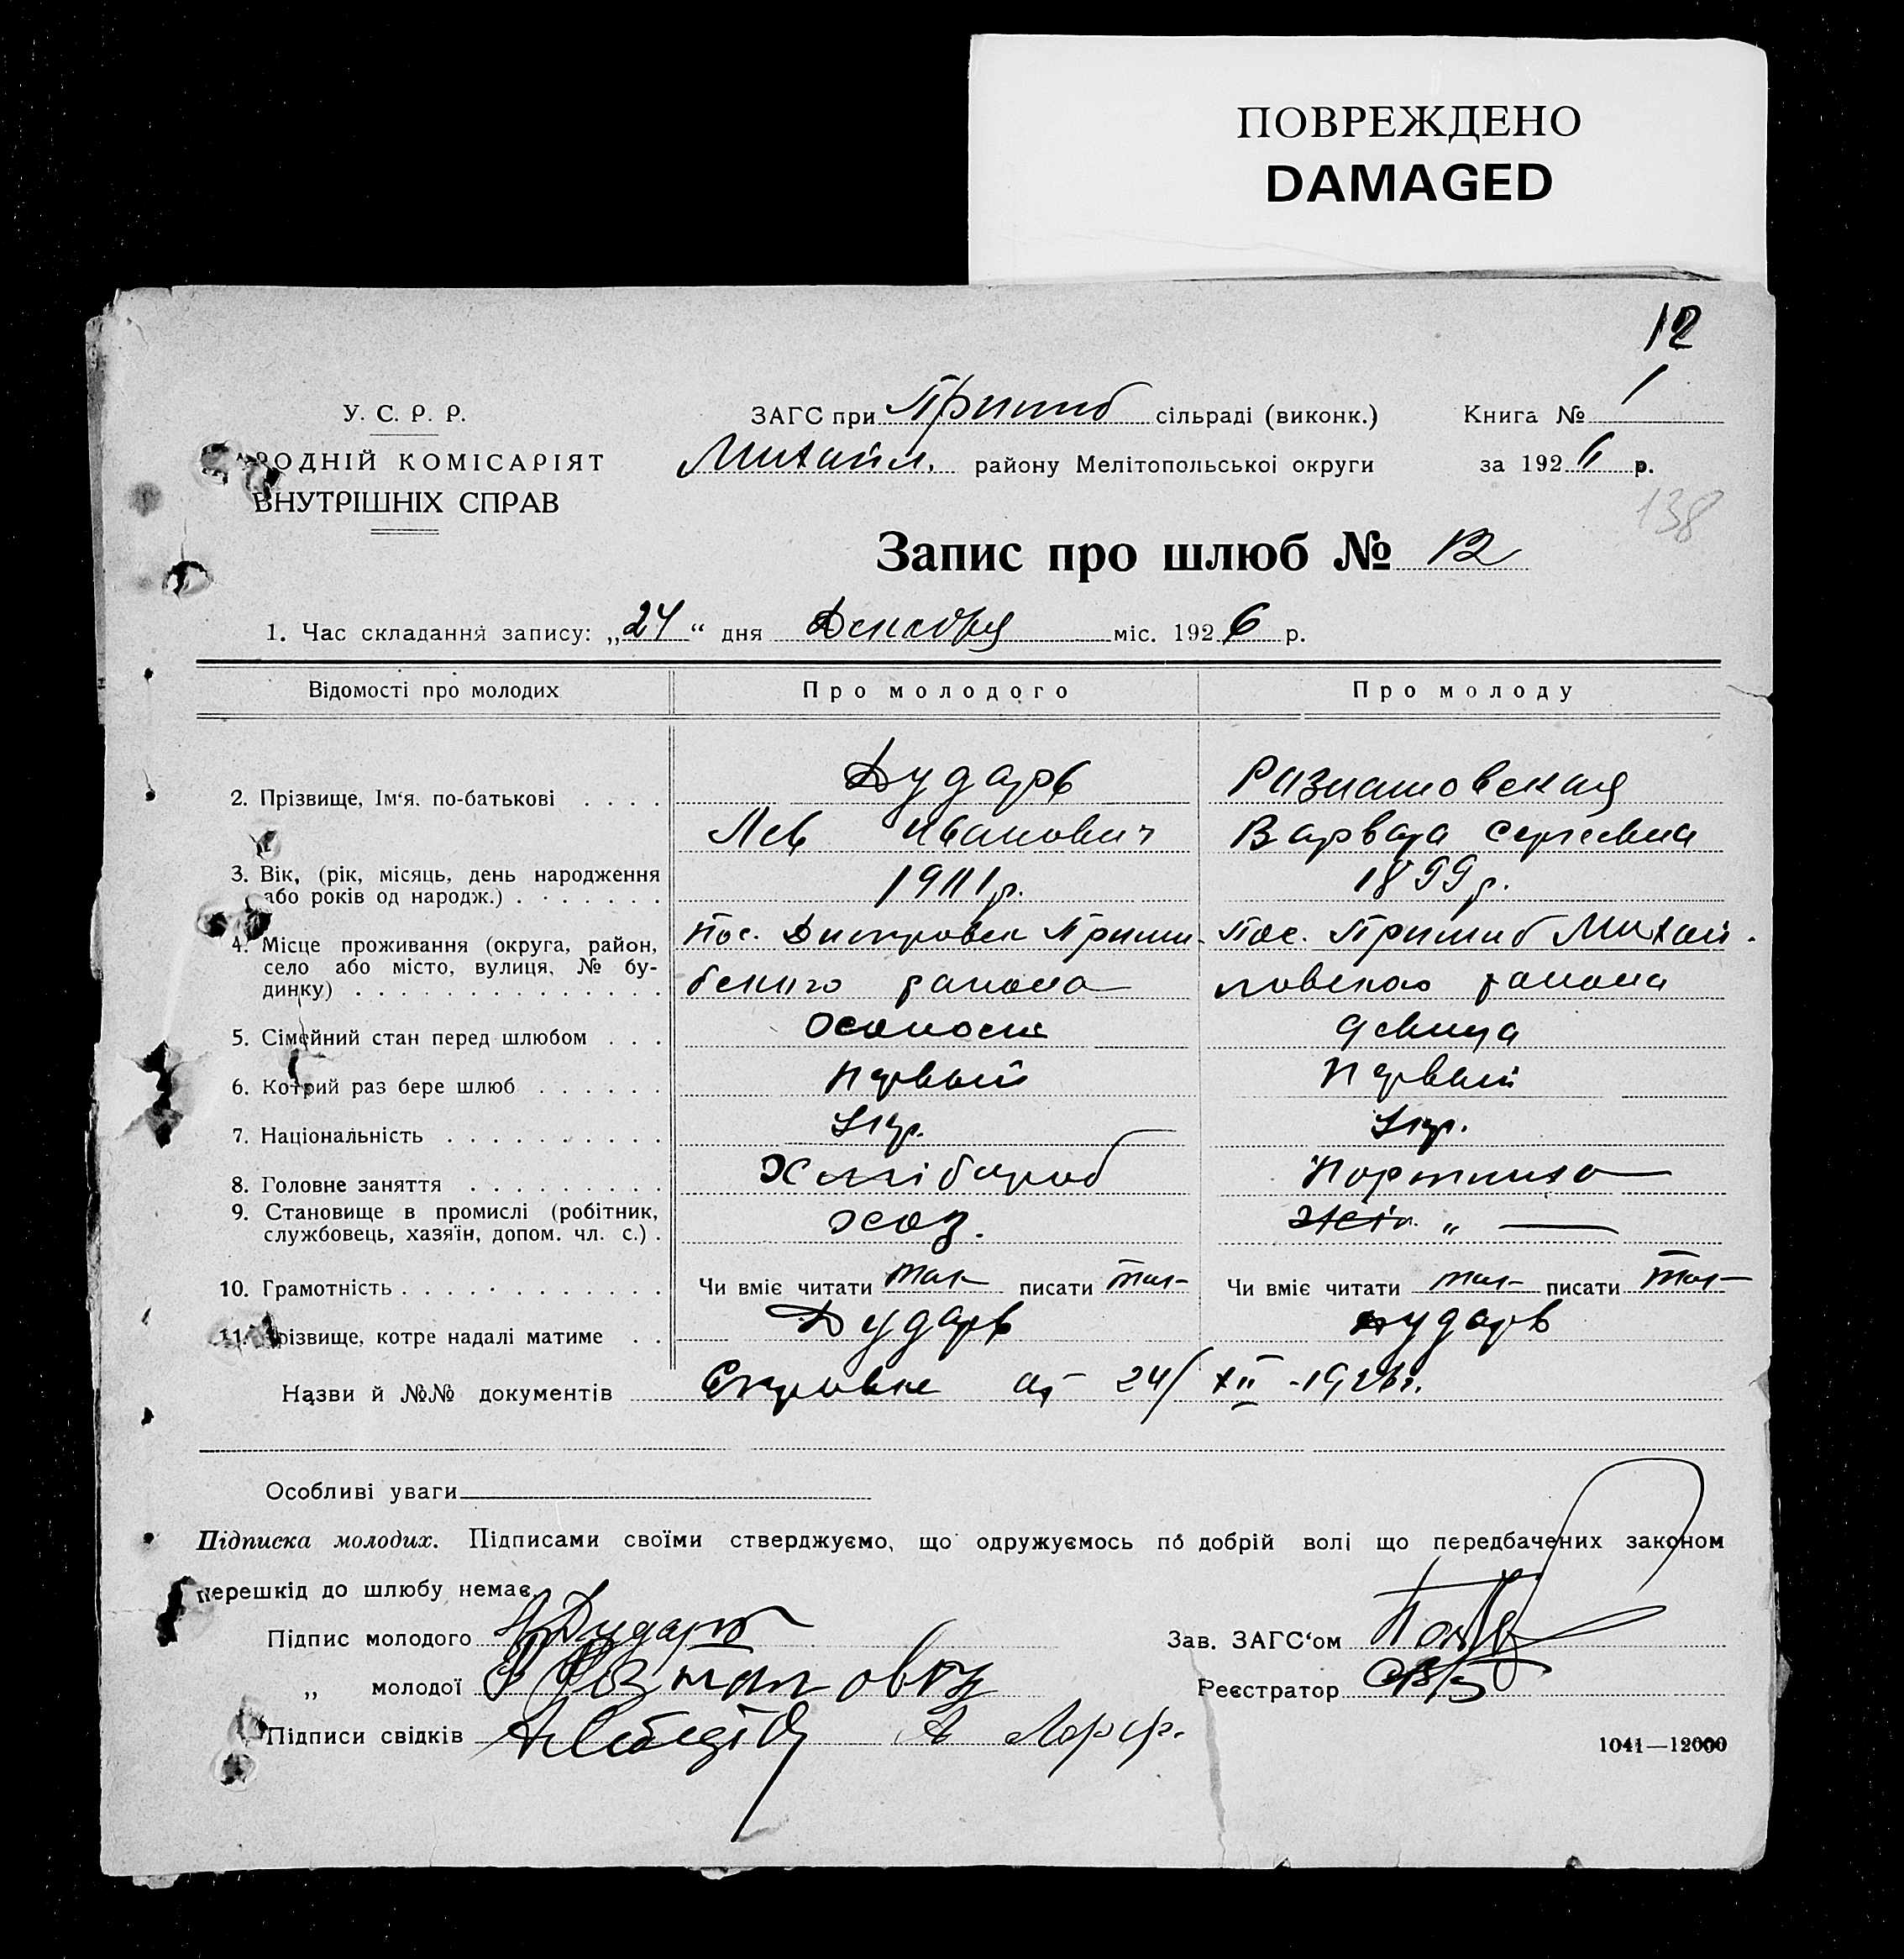 ПОВРЕЖДЕНО
DAMAGED
12
У. С. Р. Р.
ЗАГС при Пришиб сільраді (виконк.)
Книга № 1
РОДНІЙ КОМІСАРІЯТ
Михайл. району Мелітопольської округи
за 1926 р.
ВНУТРІШНІХ СПРАВ
138
Запис про шлюб № 12
1. Час складання запису: „24“ дня Декабря міс. 1926 р.
Відомості про молодих
Про молодого
Про молоду
2. Прізвище, Ім‘я. по-батькові
Дударь
Лев Иванович
Варвара Сергеевна
3. Вік, (рік, місяць, день народження
або років од народж.)
р.
1899 р.
4. Місце проживання (округа, район,
село або місто, вулиця, № бу-
динку)
пос. Днепровка Приши-
бского района
Пос. Пришиб Михай-
ловского района
5. Сімейний стан перед шлюбом
девица
6. Котрий раз бере шлюб
Первый
Первый
7. Національність
Укр.
Укр.
8. Головне заняття
Хлібороб
Портниха
9. Становище в промислі (робітник,
службовець, хазяїн, допом. чл. с.)
хоз.
„ —
10. Грамотність
Чи вміє читати так писати так
Чи вміє читати так писати так
11. різвище, котре надалі матиме
Дударь
Дударь
Назви й №№ документів
от 24/XII-1926г.
Особливі уваги
Підписка молодих. Підписами своїми стверджуємо, що одружуємось по добрій волі що передбачених законом
перешкід до шлюбу немає.
Підпис молодого Дударь
Зав. ЗАГС‘ом
„ молодої
Реєстратор
Підписи свідків
1041—12000